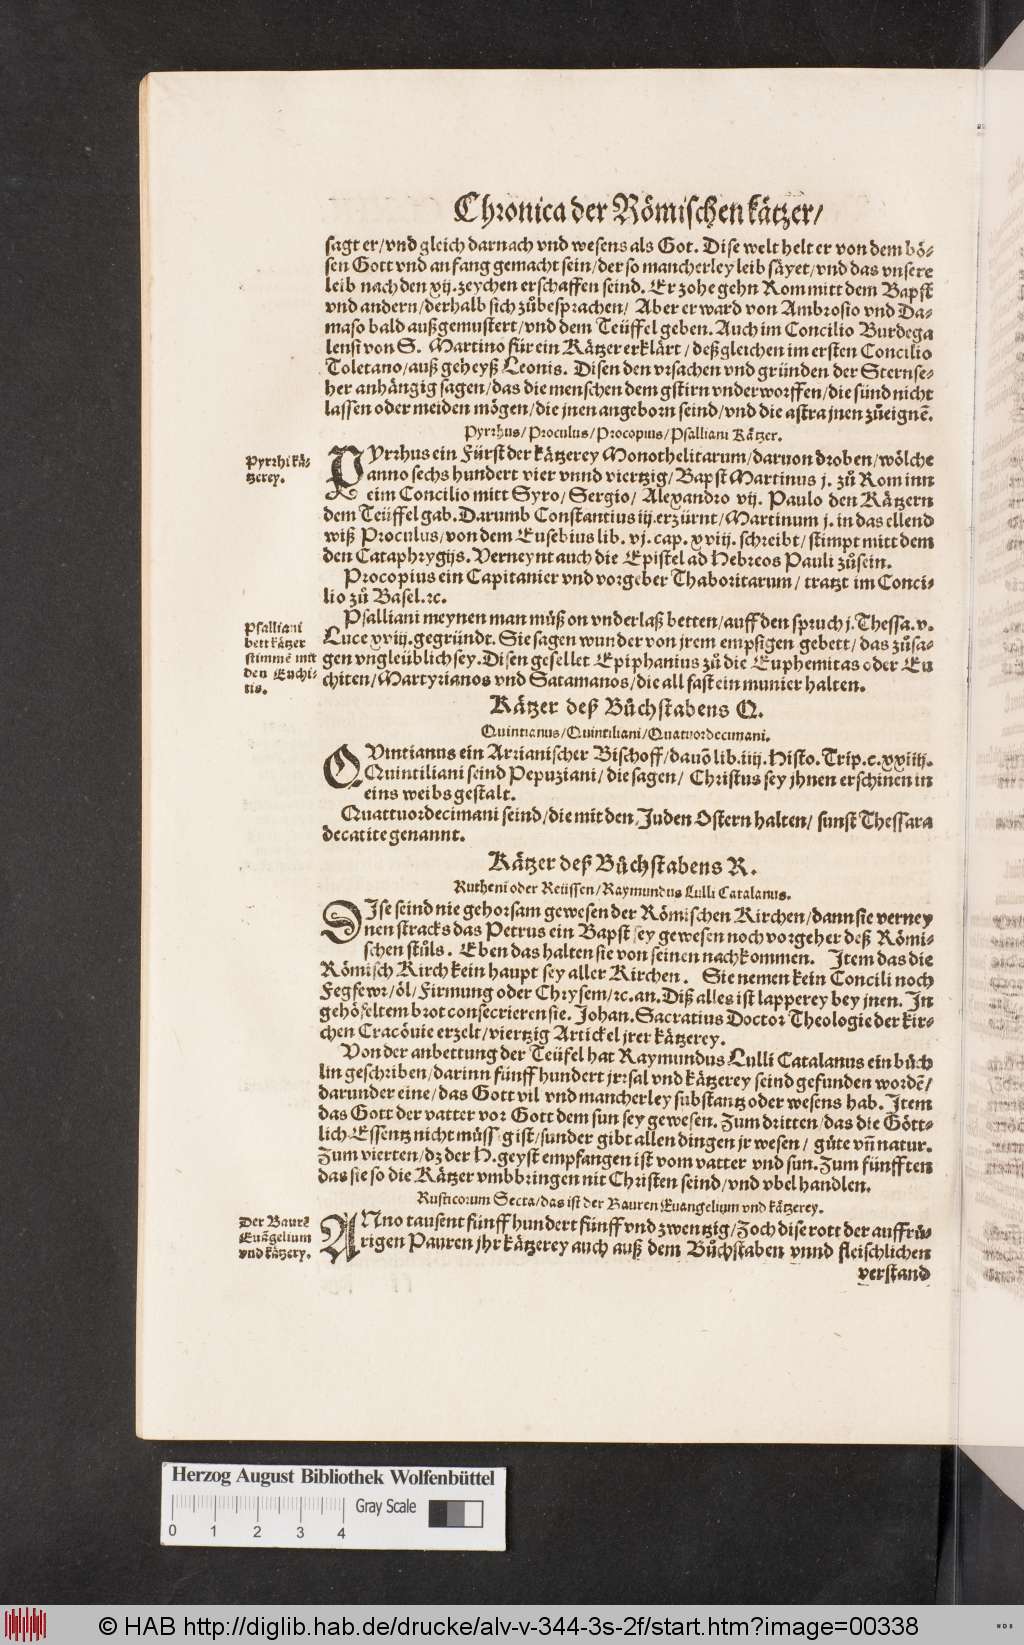 Chronica der Römischen kätzer/
sagt er/vnd gleich darnach vnd wesens als Got. Dise welt helt er von dem bö-
sen Gott vnd anfang gemacht sein/der so mancherley leib säyet/vnd das vnsere
leib nach den xij. zeychen erschaffen seind. Er zohe gehn Rom mitt dem Bapst
vnd andern/derhalb sich zůbesprachen/ Aber er ward von Ambrosio vnd Da-
maso bald außgemustert/vnd dem Teüffel geben. Auch im Concilio Burdega
lensi von S. Martino für ein Kätzer erklärt/deßgleichen im ersten Concilio
Toletano/auß geheyß Leonis. Disen den vrsachen vnd gründen der Sternse-
her anhängig sagen/das die menschen dem gstirn vnderworffen/die sünd nicht
lassen oder meiden mögen/die jnen angeborn seind/vnd die astra jnen zůeignē.
Pyrrhus/Proculus/Procopius/Psalliani Kätzer.
Pyrrhi kä-
tzerey.
PYrrhus ein Fürst der kätzerey Monothelitarum/daruon droben/wölche
anno sechs hundert vier vnnd viertzig/Bapst Martinus j. zů Rom inn
eim Concilio mitt Syro/Sergio/ Alexandro vij. Paulo den Kätzern
dem Teüffel gab. Darumb Constantius iij. erzürnt/Martinum j. in das ellend
wiß Proculus/von dem Eusebius lib. vj. cap. xviij. schreibt/stimpt mitt dem
den Cataphrygijs. Verneynt auch die Epistel ad Hebreos Pauli zůsein.
Procopius ein Capitanier vnd vorgeber Thaboritarum/ tratzt im Conci-
lio zů Basel.rc.
Psalliani
bett kätzer
stimmē mit
den Euchi-
tis.
Psalliani meynen man müß on vnderlaß betten/auff den spruch j. Thessa. v.
Luce xviij. gegründt. Sie sagen wunder von jrem empsigen gebett/das zůsa-
gen vngleüblich sey. Disen gesellet Epiphanius zů die Euphemitas oder Eu
chiten/Martyrianos vnd Satamanos/die all fast ein munier halten.
Kätzer deß Bůchstabens Q.
Quintianus/Quintiliani/Quatuordecimani.
QVintianus ein Arrianischer Bischoff/dauō lib. iiij. Histo. Trip. c. xxiiij.
Quintiliani seind Pepuziani/die sagen/ Christus sey jhnen erschinen in
eins weibs gestalt.
Quattuordecimani seind/die mit den Juden Ostern halten/ sunst Thessara
decatite genannt.
Kätzer deß Bůchstabens R.
Rutheni oder Reüssen/Raymundus Lulli Catalanus.
DIse seind nie gehorsam gewesen der Römischen Kirchen/dann sie verney
nen stracks das Petrus ein Bapst sey gewesen noch vorgeher deß Römi-
schen stůls. Eben das halten sie von seinen nachkommen. Item das die
Römisch Kirch kein haupt sey aller Kirchen. Sie nemen kein Concili noch
Fegfewr/öl/Firmung oder Chrysem/rc. an. Diß alles ist lapperey bey jnen. In
gehöfeltem brot consecrieren sie. Johan. Sacratius Doctor Theologie der kir-
chen Cracöuie erzelt/viertzig Artickel jrer kätzerey.
Von der anbettung der Teüfel hat Raymundus Lulli Catalanus ein bůch
lin geschriben/darinn fünff hundert jrrsal vnd kätzerey seind gefunden wordē/
darunder eine/das Gott vil vnd mancherley substantz oder wesens hab. Item
das Gott der vatter vor Gott dem sun sey gewesen. Zum dritten/das die Gött-
lich Essentz nicht müssig ist/sunder gibt allen dingen jr wesen/ güte vn̄ natur.
Zum vierten/dz der H. geyst empfangen ist vom vatter vnd sun. Zum fünfften
das sie so die Kätzer vmbbringen nit Christen seind/vnd vbel handlen.
Rusticorum Secta/das ist der Bauren Euangelium vnd kätzerey.
Der Baurē
Euāgelium
vnd kätzery.
ANno tausent fünff hundert fünff vnd zwentzig/Zoch dise rott der auffrů-
rigen Pauren jhr kätzerey auch auß dem Bůchstaben vnnd fleischlichen
verstand
Herzog August Bibliothek Wolfenbüttel
Gray Scale
0 1 2 3 4
© HAB http://diglib.hab.de/drucke/alv-v-344-3s-2f/start.htm?image=00338